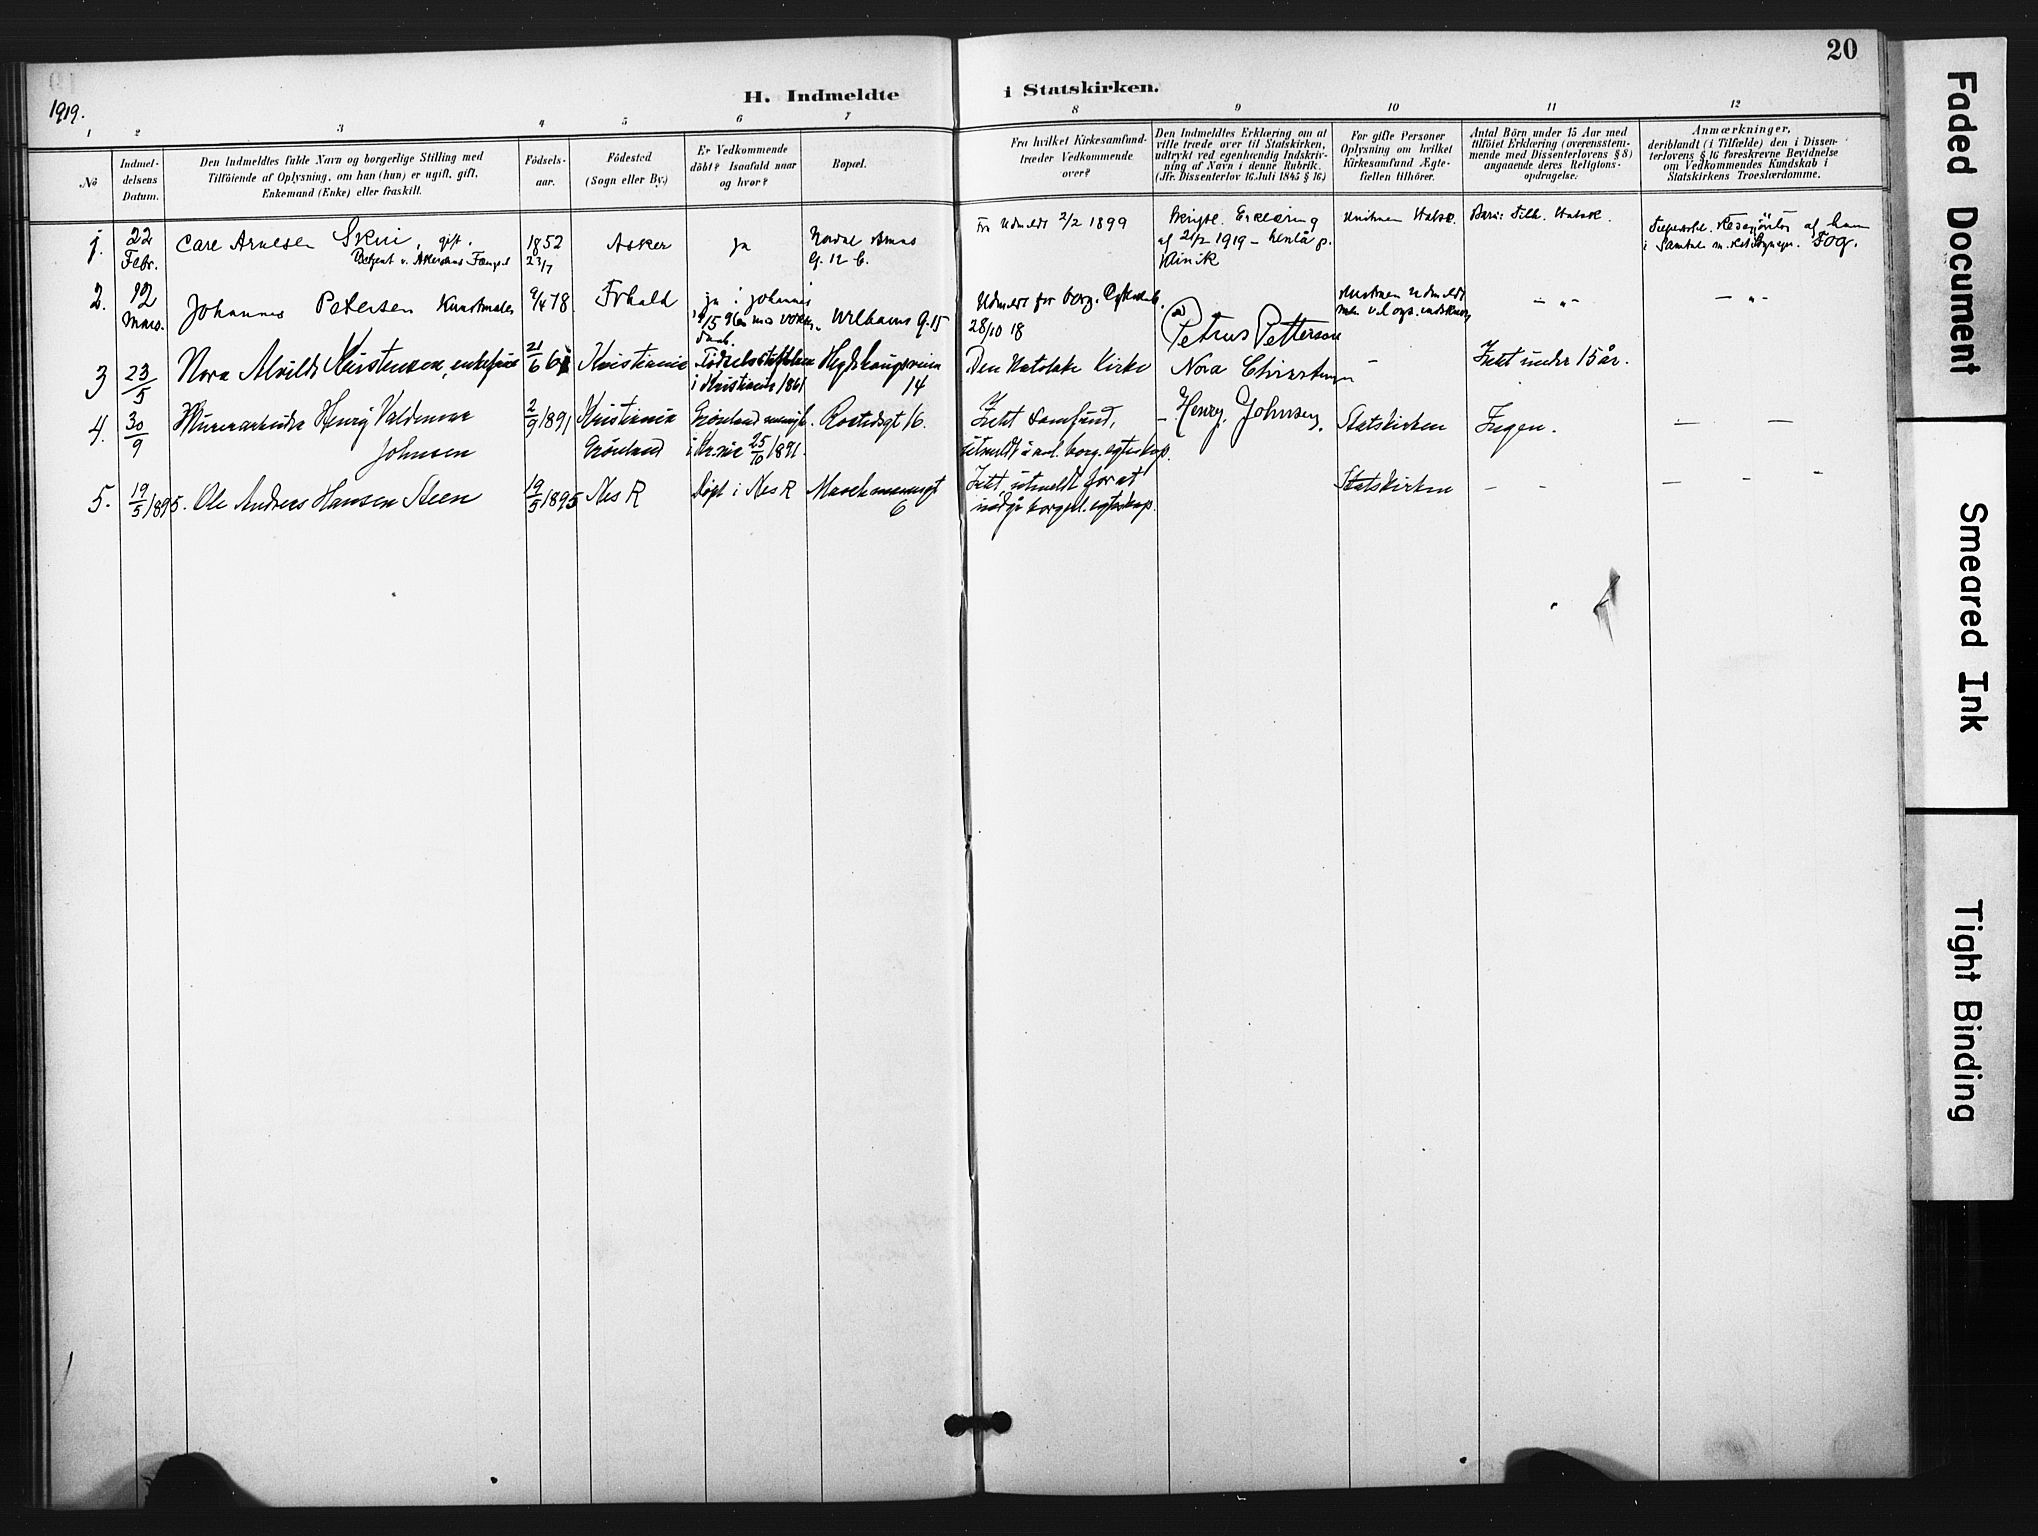 20
1919.
H. Indmeldte i Statskirken.
1 2 3 4 5 6 7 8 9 10 11 12
No
Indmel-
delsens
Datum.
Den Indmeldtes fulde Navn og borgerlige Stilling med
Tilföiende af Oplysning, om han (hun) er ugift, gift,
Enkemand (Enke) eller fraskilt.
Födsels-
aar.
Födested
(Sogn eller By.)
Er Vedkommende
döbt? Isaafald naar
og hvor?
Bopæl.
Fra hvilket Kirkesamfund
træder Vedkommende
over?
Den Indmeldtes Erklæring om at
ville træde over til Statskirken,
udtrykt ved egenhændig Indskriv-
ning af Navn i denne Rubrik.
(Jfr. Dissenterlov 16. Juli 1845 § 16)
For gifte Personer
Oplysning om hvilket
Kirkesamfund Ægte-
fællen tilhörer.
Antal Börn under 15 Aar med
tilföiet Erklæring (overensstem-
mende med Dissenterlovens § 8)
angaaende deres Religions-
opdragelse.
Anmærkninger,
deriblandt (i Tilfælde) den i Dissen-
terlovens § 16 foreskrevne Bevidnelse
om Vedkommendes Kundskab i
Statskirkens Troeslærdomme.
1.
22
Febr.
Carl Arnesen Skui, gift.
Betjent v. Akershus Fængsel
1852
23/7
Asker
ja
G. 12 b.
Udmeldt 2/2 1899
Skriftl. Erklæring
af 21/2 1919 –
Klinik
Hustruen Statsk.
Börn: Tilh. Statsk.
af ham
i Samtale m.
2.
12
Mars.
Johannes Petersen Kunstmaler
9/4 78
Frhald
ja i Johannes
Wilhelms g. 15
Udmeldt for borg.
28/10 18
Petrus Petterson
Hustruen Udmeldt
– „ –
– „ –
3
23/5
Nora Alvilde Kristensen, enkefrue
21/6 61
Kristiania
Fødselsstiftelsen
i Kristiania 1861
Hegdehaugsveien
14
Den Katolske Kirke
Nora Christensen
–
Intet under 15 år.
4.
30/9
Murerarbeider Henry Valdemar
Johnsen
2/9 1891
Kristiania
Grønland
Grønland menigh.
i Kr.nia 25/10 1891.
Rostedsgt 16.
Intet Samfund,
utmeldt i anl. borg. egteskap.
– Henry Johnsen.
Statskirken
Ingen.
– –
5.
19/5 1895.
Ole Andreas Hansen Steen
19/5 1895
Nes R
Døpt i Nes R
6
Intet utmeldt for at
indgå borgerl. egteskap.
Statskirken
– –
– –
Faded Document
Smeared Ink
Tight Binding